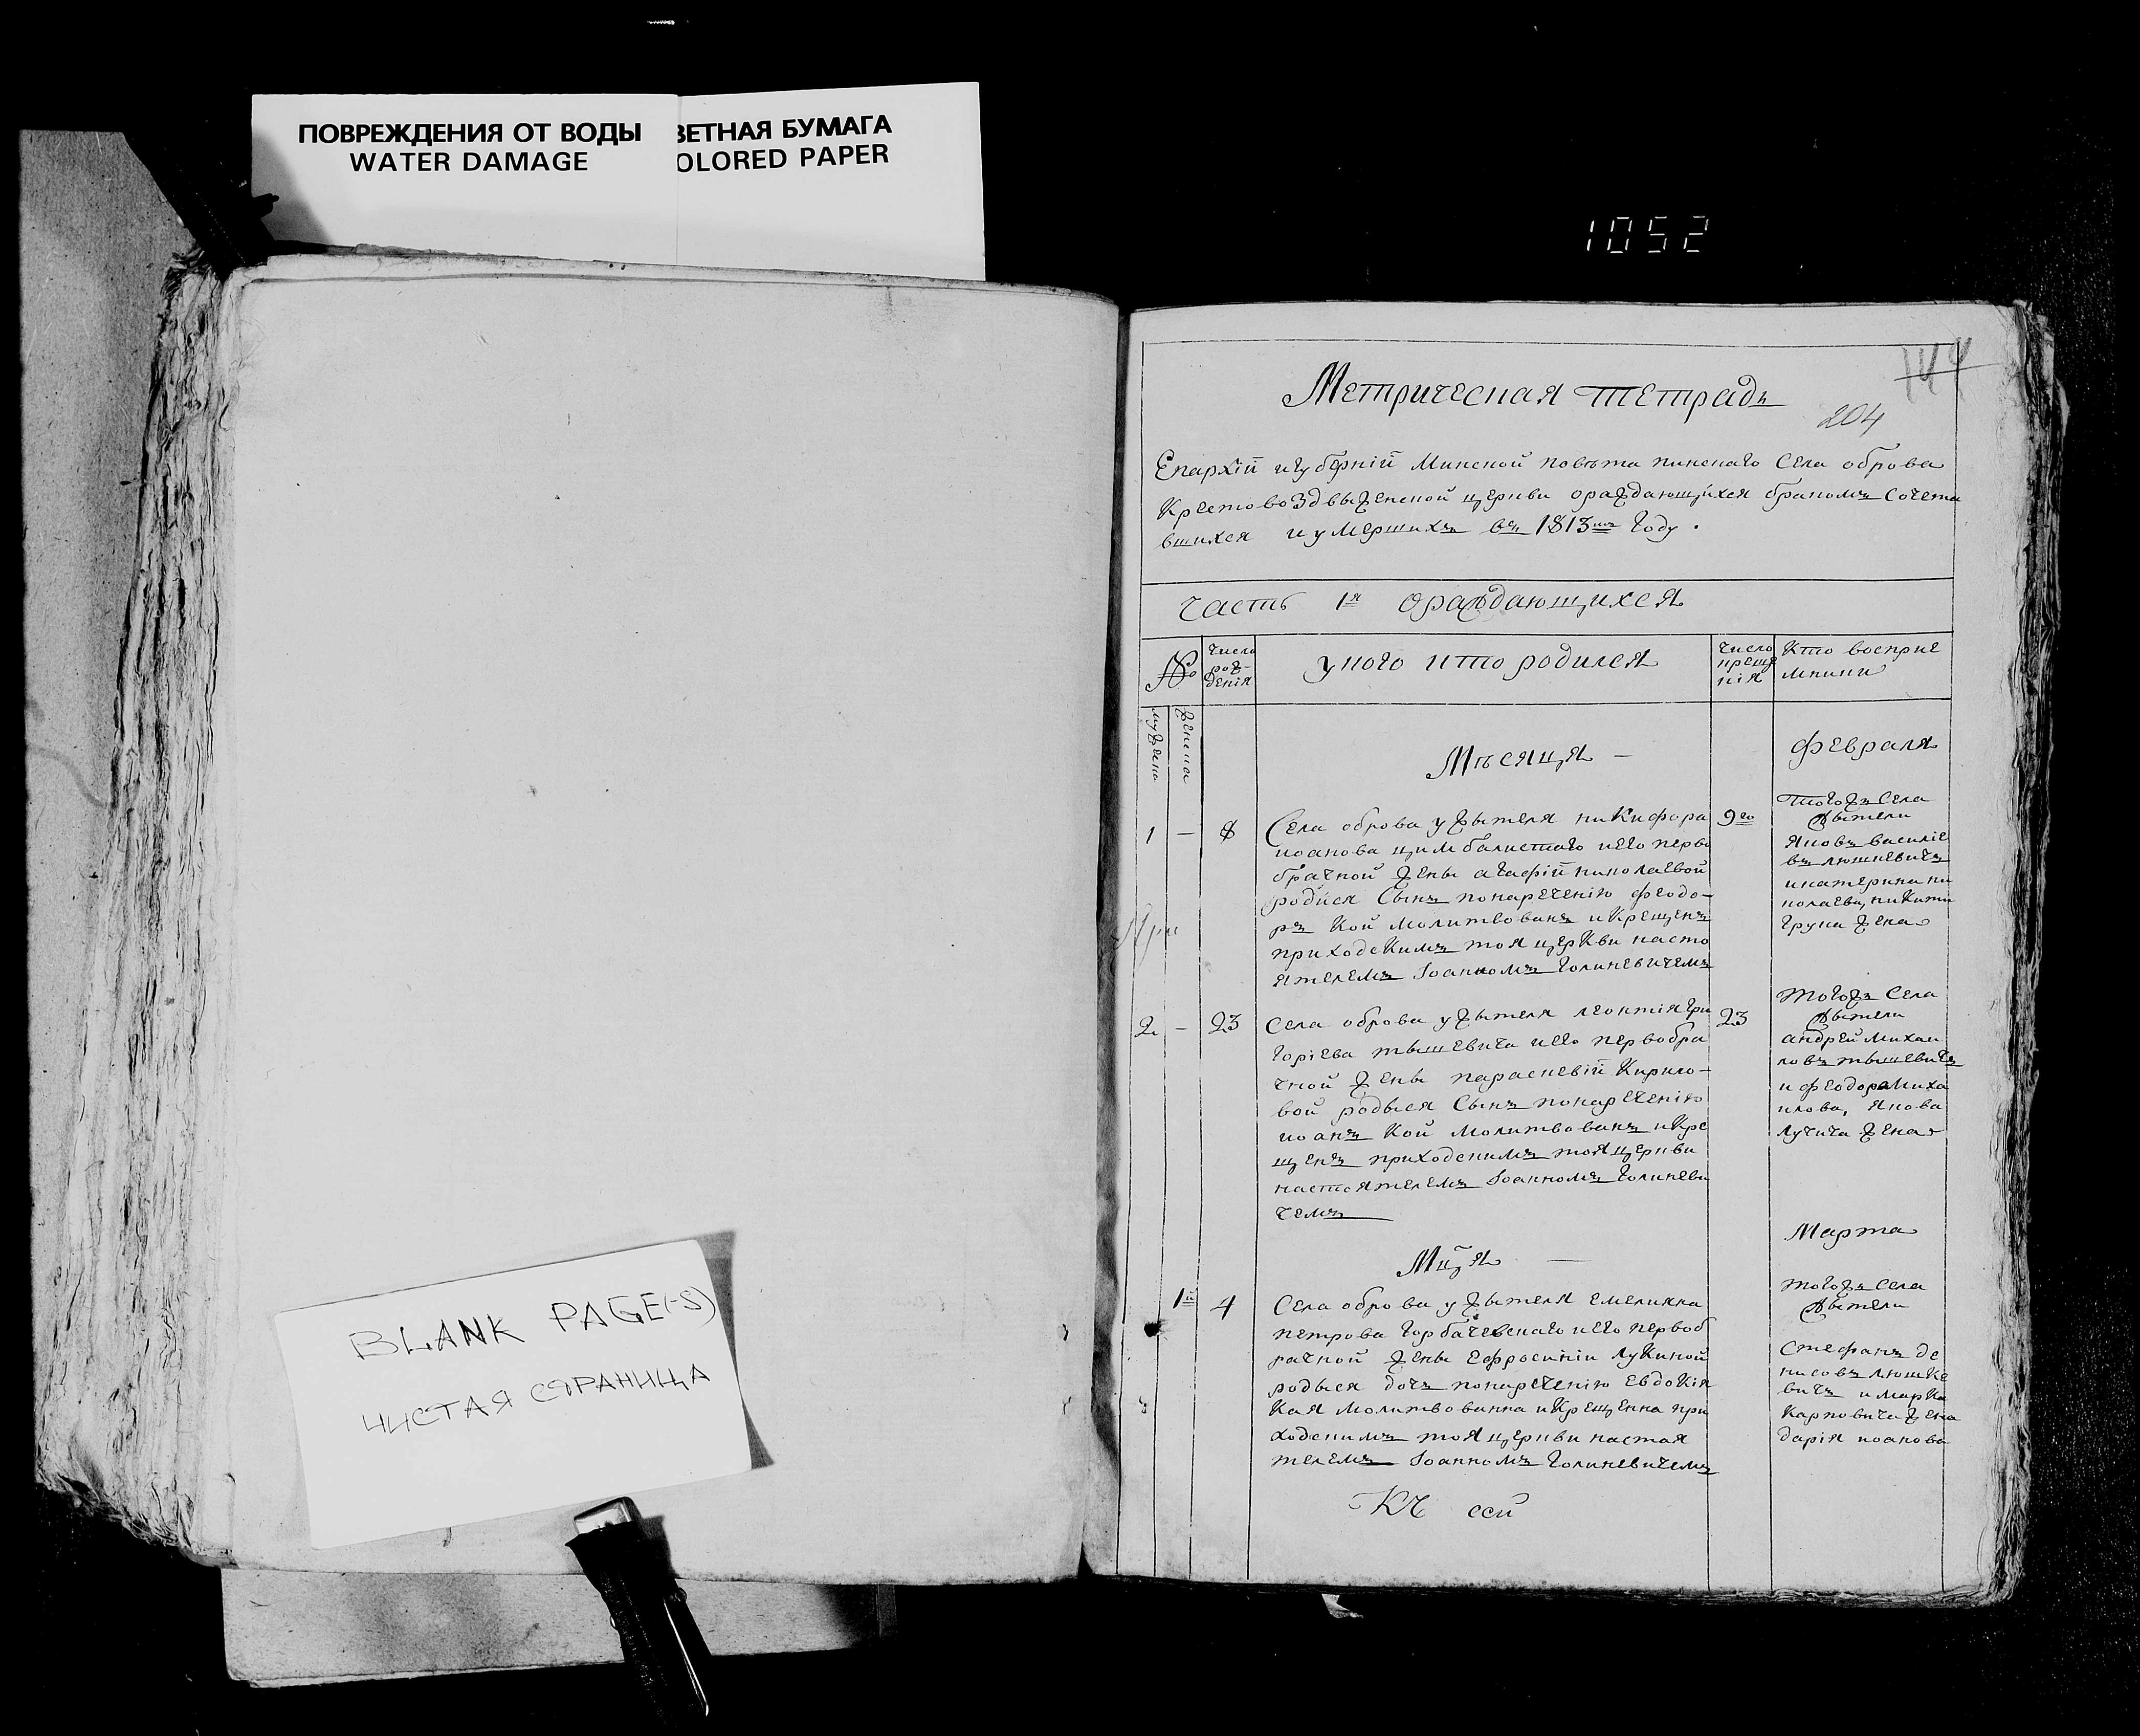 ПОВРЕЖДЕНИЯ ОТ ВОДЫ
WATER DAMAGE
ВЕТНАЯ БУМАГА
OLORED PAPER
1052
BLANK PAGE(-S)
ЧИСТАЯ СТРАНИЦА
144
Метрическая тетрадь
204
Епархіи и губерніи Минской повѣта пинскаго Села оброва
Крестовоздвыженской церкви оражdающихся бракомъ Сочета
вшихся и умершихъ въ 1813мъ году.
Часть 1я ораждающихся
№
Число
рож-
денія
у кого и кто родился
Число
креще
нія
Кто восприе
мники
мужеска
женска
Мѣсяця —
февраля
1 — 8
Села оброва у жытеля никифора
иоанова цимбалистаго и его перво
брачной жены агафіи николаевой
родися Сынъ по наречению феодо-
ръ Кой молитвованъ и Крещенъ
приходскимъ тоя церкви насто
ятелемъ Іоанномъ Голиневичемъ
9го
тогожъ Села
жытели
яковъ василіе
въ люшкевичъ
и катерина ни
колаева, никити
грука жена
2 — 23
Села оброва у жытеля леонтія гри
горіева тышевича и его первобра
чной жены параскевіи Кирило-
вой родыся Сынъ по наречению
иоанъ Кой молитвованъ и Кре
щенъ приходскимъ тоя церкви
настоятелемъ Іоанномъ Голиневи
чемъ
23
тогожъ Села
жытели
андрей михаи
ловъ тышевичъ
и феодора миха
илова, якова
лучича жена
Мця —
Марта
1й 4
Села оброва у жытеля емелияна
петрова горбачевскаго и его первоб
рачной жены ефросиніи лукиной
родыся дочь по наречению евдокія
Кая молитвованна и Крещенна при
ходскимъ тоя церкви настоя
телемъ Іоанномъ Голиневичемъ
тогожъ Села
жытели
Стефанъ де
нисовъ люшке
вичъ и марка
Карповича жена
дарія иоанова